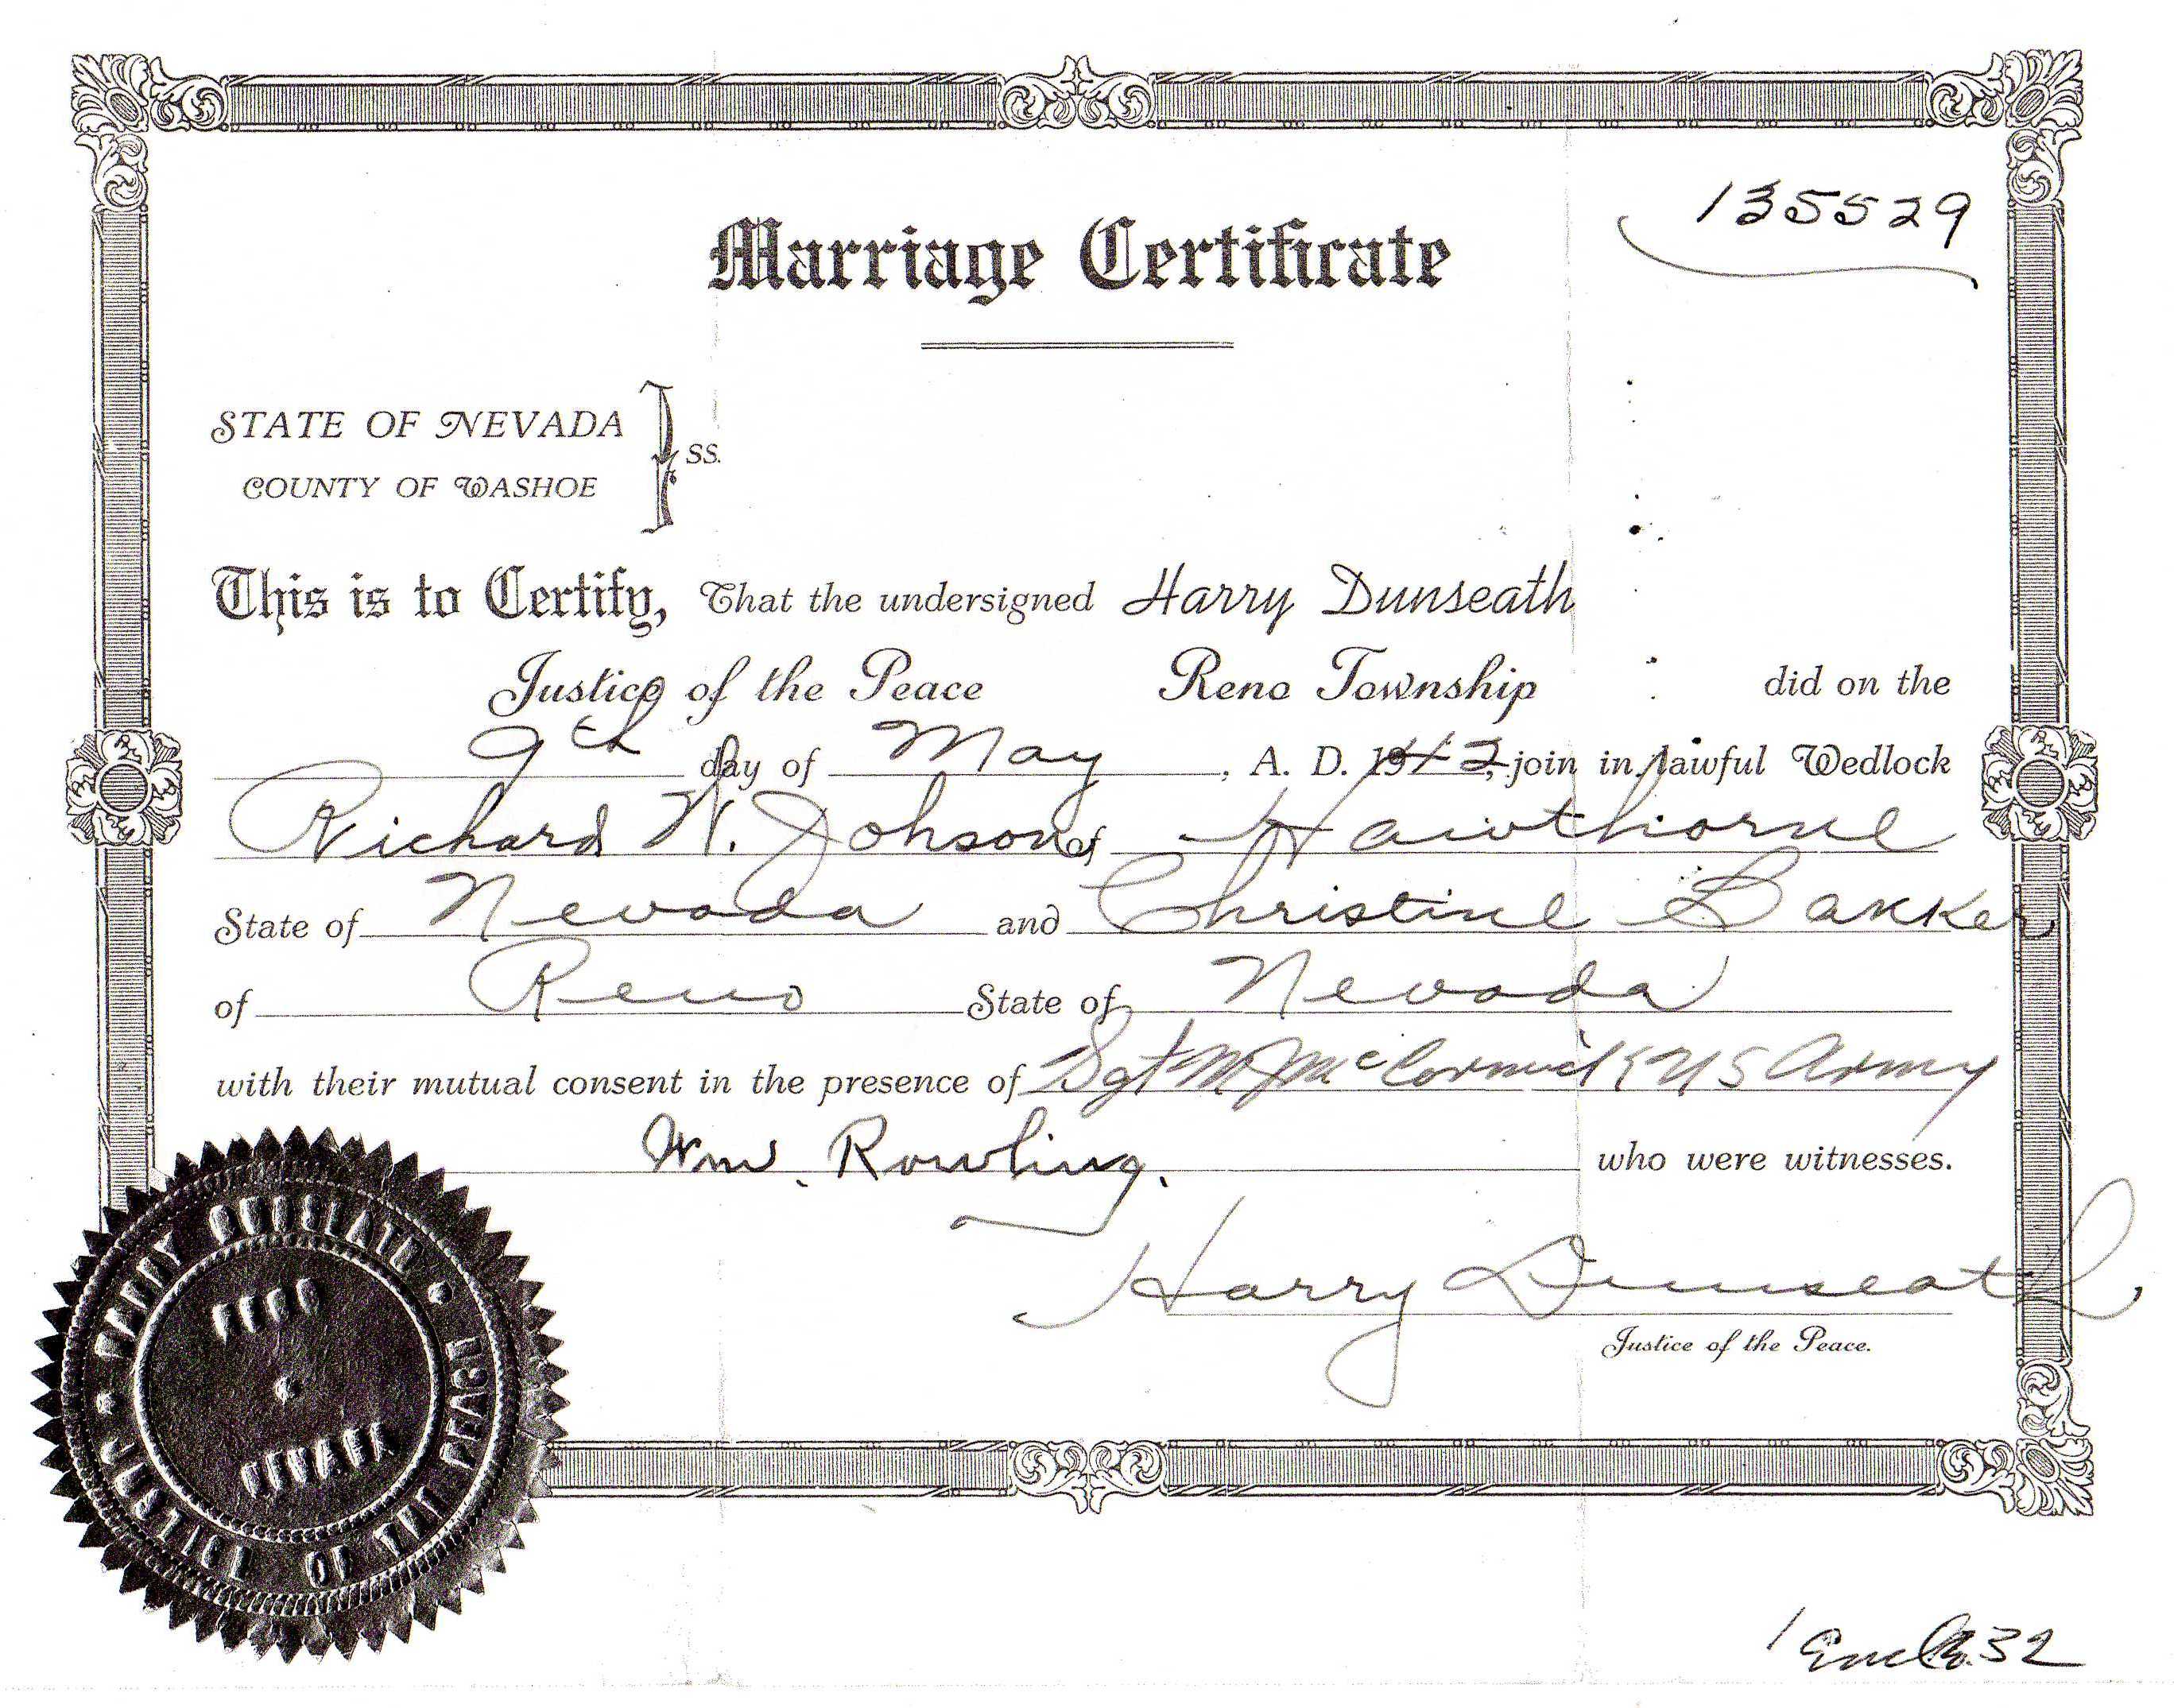 135529
Marriage Certificate
STATE OF NEVADA
SS.
COUNTY OF WASHOE
This is to Certify, That the undersigned Harry Dunseath
Justice of the Peace Reno Township did on the
9th day of May, A. D. 1942, join in lawful Wedlock
Richard W. Johson of Hawthorne
State of Nevada and Christine Bakker
of Reno State of Nevada
with their mutual consent in the presence of Sgt McCormick US Army
Wm. Rowling. who were witnesses.
Harry Dunseath
Justice of the Peace.
HARRY DUNSEATH • JUSTICE OF THE PEACE •
RENO
NEVADA
32